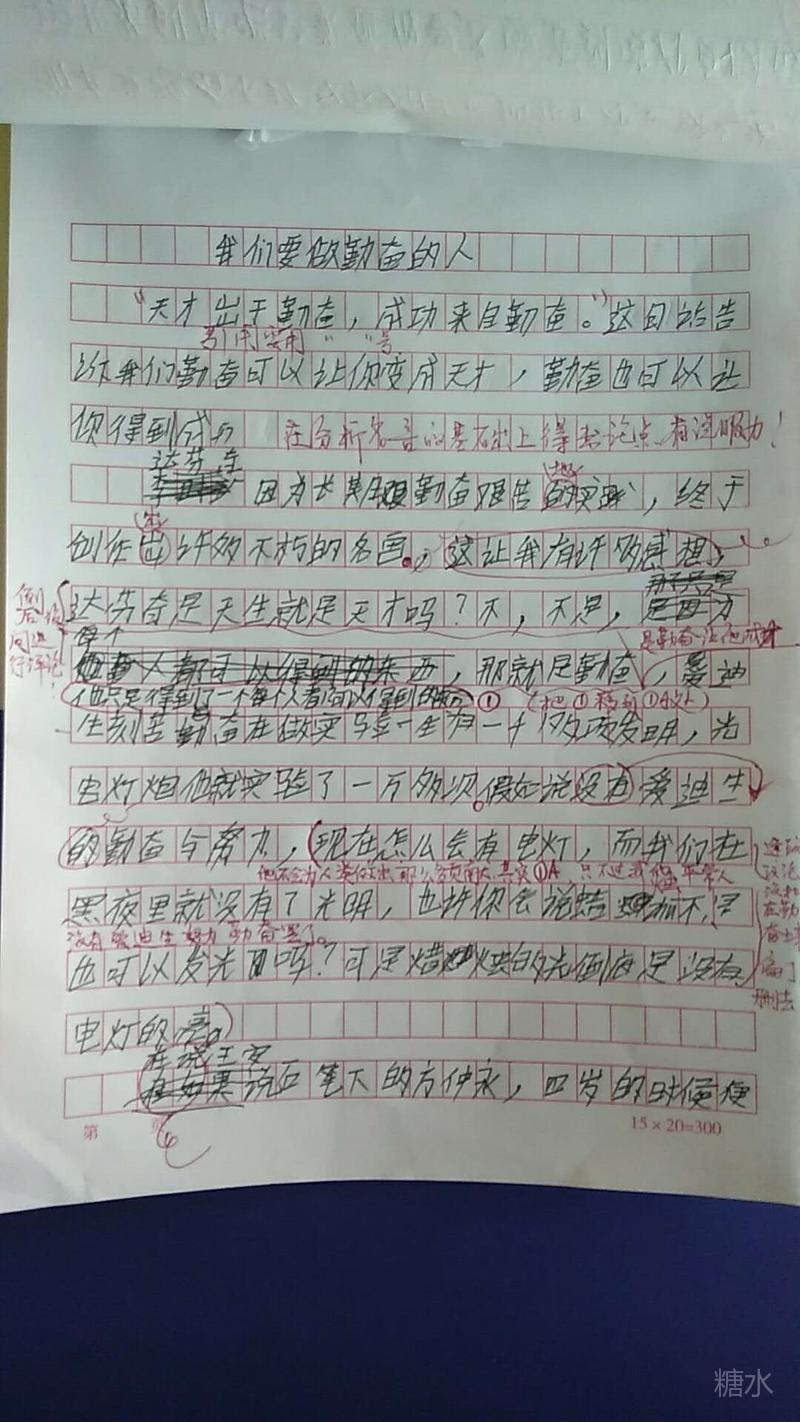 我们要做勤奋的人
“天才出于勤奋,成功来自勤奋。”这句话告
引用要用“ ”号
诉我们勤奋可以让你变成天才,勤奋也可以让
你得到成功
在分析名言的基础上得出论点,有说服力!
达芬奇
因为长期勤奋艰苦的实践,终于
创作出许多不朽的名画。这让我有许多感想,
达芬奇是天生就是天才吗?不,不是,
是勤奋让他成才
每个
人都可以得到的东西,那就是勤奋,爱迪
他只是得到了一个每个人都可以得到的
①(把①移到①A处)
生刻苦勤奋在做实验一生有一千多项发明,光
电灯炮他就实验了一万多次。假如说没有爱迪生
的勤奋与努力,现在怎么会有电灯,而我们在
他不会为人类做出那么多贡献大,其实①A,只不过我们平常人
黑夜里就没有了光明,也许你会说蜡烛不是
没有爱迪生努力勤奋罢了。
也可以发光吗?可是蜡烛的光倒底是没有
电灯的亮。
删去
在说王安
石笔下的方仲永,四岁的时候便
第
页
15×20=300
糖水